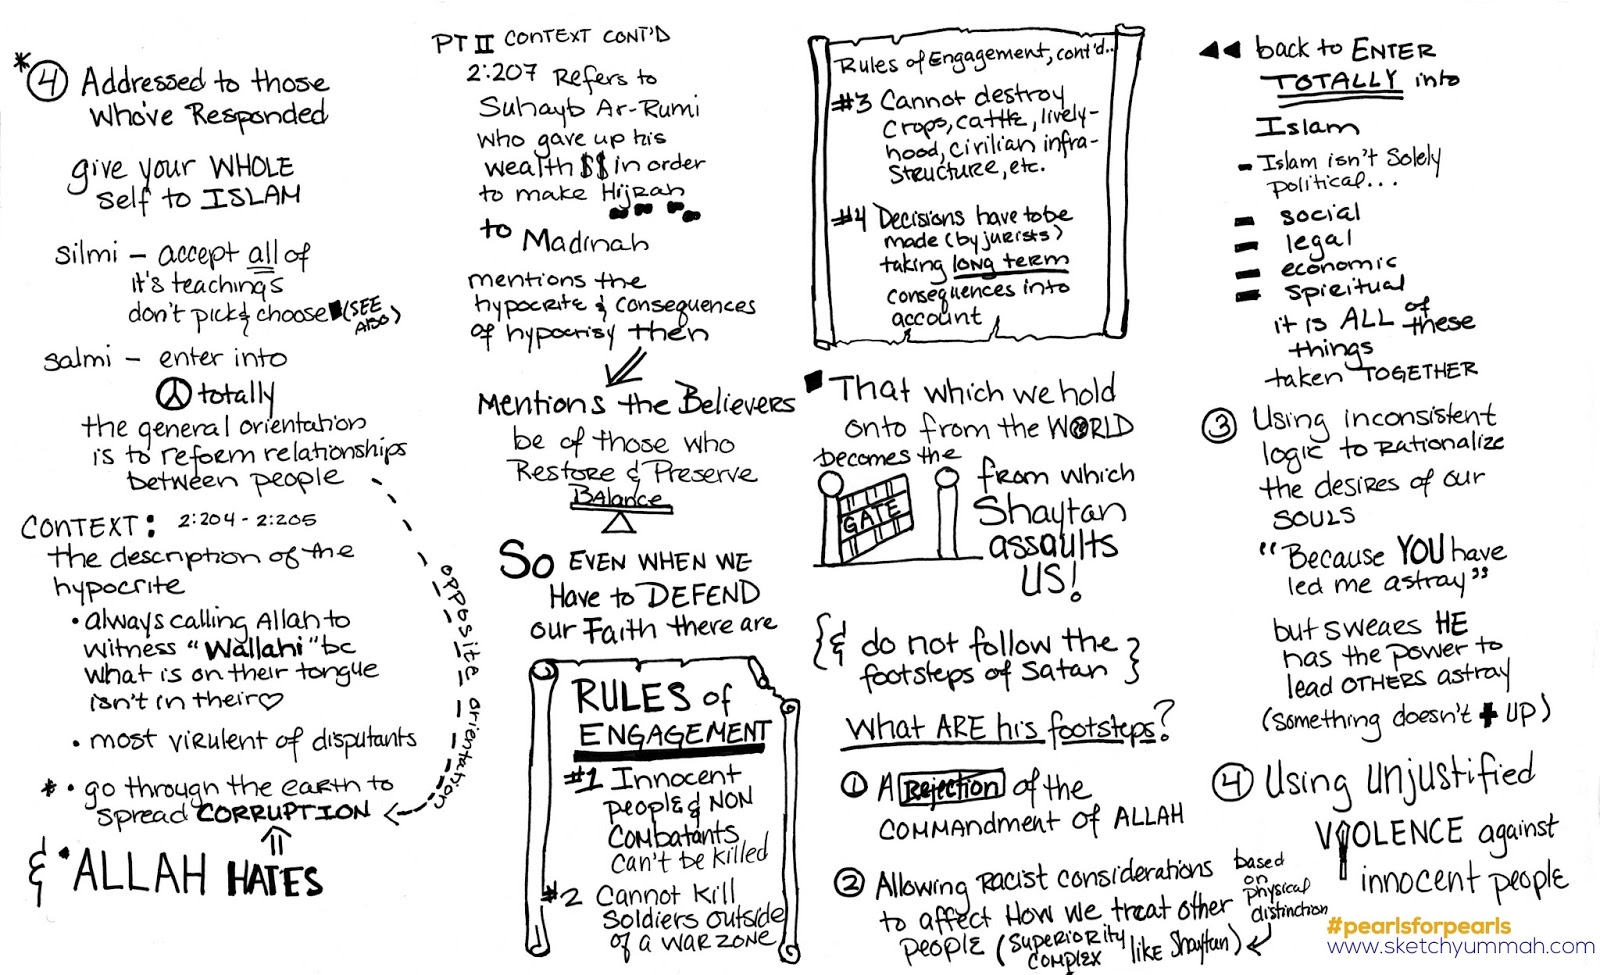 *④ Addressed to those
who've Responded
give your WHOLE
self to ISLAM
silmi - accept all of
it's teachings
don't pick & choose (SEE
ALSO)
salmi - enter into
☮ totally
the general orientation
is to reform relationships
between people
CONTEXT: 2:204 - 2:205
the description of the
hypocrite
• always calling Allah to
witness "Wallahi" bc
what is on their tongue
isn't in their ♡
• most virulent of disputants
* • go through the earth to
spread CORRUPTION
& • ALLAH HATES
opposite orientation
PT II CONTEXT CONT'D
2:207 Refers to
Suhayb Ar-Rumi
who gave up his
wealth $$ in order
to make Hijrah
to Madinah
mentions the
hypocrite & consequences
of hypocrisy then
Mentions the Believers
be of those who
Restore & Preserve
Balance
So EVEN WHEN WE
Have to DEFEND
our Faith there are
RULES of
ENGAGEMENT
#1 Innocent
people & NON
Combatants
can't be killed
#2 Cannot Kill
Soldiers outside
of a WAR ZONE
Rules of Engagement, cont'd..
#3 Cannot destroy
Crops, cattle, lively-
hood, civilian infra-
structure, etc.
#4 Decisions have to be
made (by jurists)
taking long term
consequences into
account
That which we hold
onto from the WORLD
becomes the
GATE
from which
Shaytan
assaults
US!
{& do not follow the
footsteps of Satan}
What ARE his footsteps?
① A Rejection of the
COMMANDMENT of ALLAH
② Allowing Racist considerations
to affect How we treat other
people (Superiority
complex like Shaytan)
based
on
physical
distinction
◀◀ back to ENTER
TOTALLY into
Islam
- Islam isn't Solely
political...
- social
- legal
- economic
- spiritual
it is ALL of
these
things
taken TOGETHER
③ Using inconsistent
logic to Rationalize
the desires of our
SOULS
"Because YOU have
led me astray"
but swears HE
has the power to
lead OTHERS astray
(something doesn't + UP)
④ Using unjustified
VIOLENCE against
innocent people
#pearlsforpearls
www.sketchyummah.com